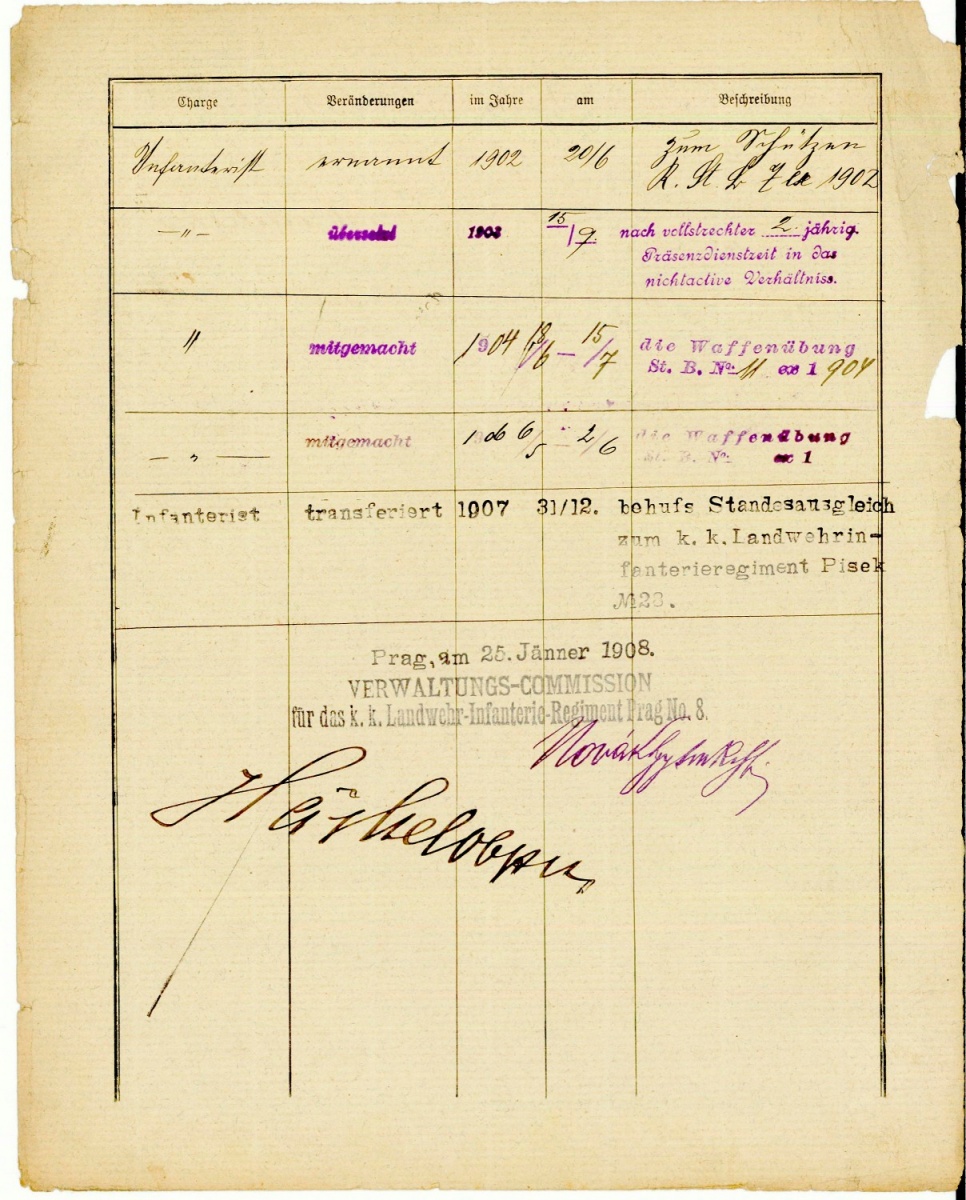 Charge Veränderungen im Jahre am Beschreibung
Infanterist ernannt 1902 20/6 zum Schützen
R. St. B 7 ex 1902
— " — übersetzt 1903 15/9. nach vollstreckter 2 jährig.
Präsenzdienstzeit in das
nichtactive Verhältniss.
" mitgemacht 1904 18/6 — 15/7 die Waffenübung
St. B. No. 11 ex 1904
— " — mitgemacht 1906 6/5 — 2/6 die Waffenübung
St. B. No. ex 1
Infanterist transferiert 1907 31/12. behufs Standesausgleich
zum k. k. Landwehrin-
fanterieregiment Pisek
№28.
Prag, am 25. Jänner 1908.
VERWALTUNGS-COMMISSION
für das k. k. Landwehr-Infanterie-Regiment Prag No. 8.
Novák